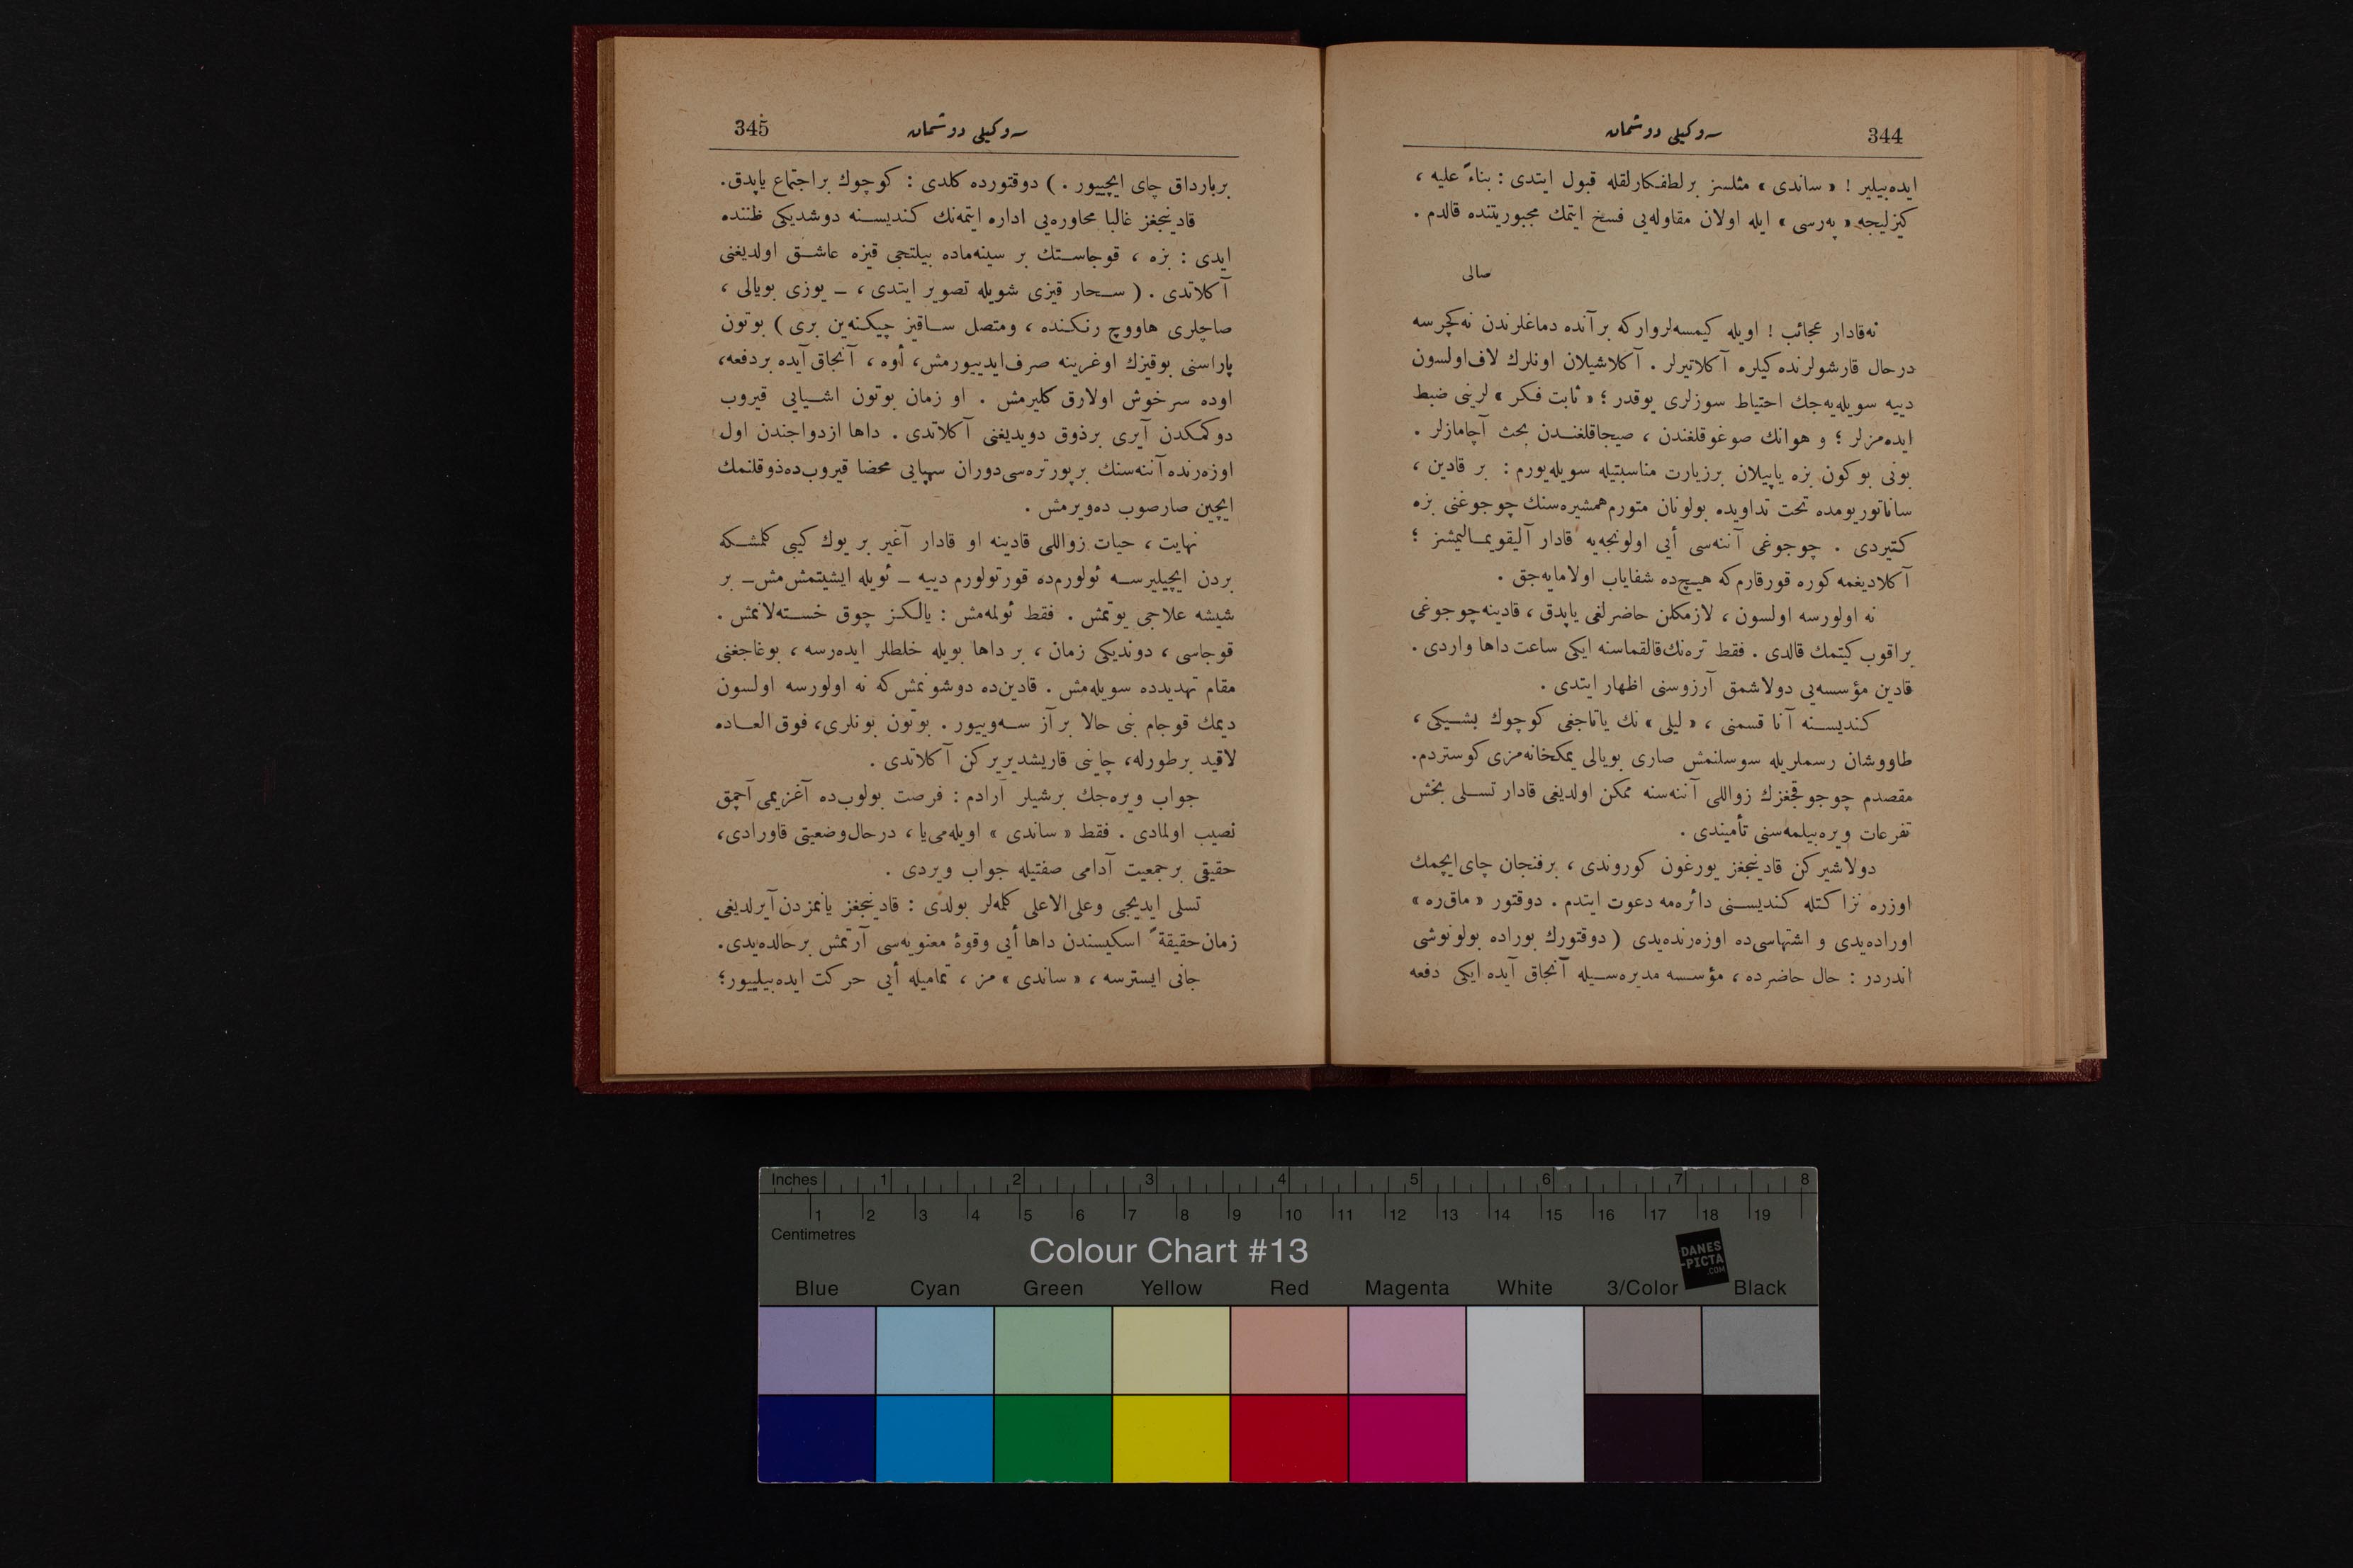 344
سه‌وكيلى دوشمان
ايده‌بيلير ! « ساندى » مثلسز بر لطفكارلقله قبول ايتدى : بناءً عليه ،
كيزليجه « په‌رسى » ايله اولان مقاوله‌يى فسخ ايتمك مجبوريتنده قالدم .
صالى
نه‌قادار عجائب ! اويله كيمسه‌لرواركه برآنده دماغلرندن نه‌كچرسه
درحال قارشولرنده‌كيلره آكلاتيرلر . آكلاشيلان اونلرك لاف‌اولسون
دييه سويله‌يه‌جك احتياط سوزلرى يوقدر ؛ « ثابت فكر » لرينى ضبط
ايده‌مزلر ؛ و هوانك صوغوقلغندن ، صيجاقلغندن بحث آچامازلر .
بونى بوكون بزه ياپيلان برزيارت مناسبتيله سويله‌يورم : بر قادين ،
ساناتوريومده تحت تداويده بولونان متورم همشيره‌سنك چوجوغنى بزه
كتيردى . چوجوغى آننه‌سى أيى اولونجه‌يه قادار آليقويمـاليمشز ؛
آكلاديغمه كوره قورقارم‌كه هيچ‌ده شفاياب اولامايه‌جق .
نه اولورسه اولسون ، لازمكلن حاضرلغى ياپدق ، قادينه‌چوجوغى
براقوب كيتمك قالدى . فقط ترەنك‌قالقماسنه ايكى ساعت داها واردى .
قادين مؤسسه‌يى دولاشمق آرزوسنى اظهار ايتدى .
كنديسـنه آنا قسمنى ، « ليلى » نك ياتاجغى كوچوك بشـيكى ،
طاووشان رسملريله سوسلنمش صارى بويالى يمكخانه‌مزى كوستردم.
مقصدم چوجوقجغزك زواللى آننه‌سنه ممكن اولديغى قادار تسـلى بخش
تفرعات ويره‌بيلمه‌سنى تأميندى .
دولاشيركن قادينجغز يورغون كوروندى ، برفنجان چاى‌ايچمك
اوزره نزاكتله كنديسـنى دائره‌مه دعوت ايتدم . دوقتور « ماق‌ره »
اوراده‌يدى و اشتهاسى‌ده اوزه‌رنده‌يدى ( دوقتورك بوراده بولونوشى
اندردر : حال حاضرده ، مؤسسه مديره‌سـيله آنجاق آيده ايكى دفعه
345
سه‌وكيلى دوشمان
بربارداق چاى ايچييور . ) دوقتورده كلدى : كوچوك براجتماع ياپدق.
قادينجغز غالبا محاوره‌يى اداره ايتمه‌نك كنديسـنه دوشديكى ظننده
ايدى : بزه ، قوجاسـنك بر سينه‌ماده بيلتجى قيزه عاشـق اولديغنى
آكلاتدى . ( سـحار قيزى شويله تصوير ايتدى ، ـ يوزى بويالى ،
صاچلرى هاووچ رنكنده ، ومتصل سـاقيز چيكنه‌ين برى ) بوتون
پاراسنى بوقيزك اوغرينه صرف‌ايدييورمش، أوه ، آنجاق‌آيده بردفعه،
اوده سرخوش اولارق كليرمش . او زمان بوتون اشـيايى قيروب
دوكمكدن آيرى برذوق دويديغنى آكلاتدى . داها ازدواجندن اول
اوزه‌رنده آننه‌سنك برپورتره‌سى‌دوران سهپايى محضا قيروب‌ده‌ذوقلنمك
ايچين صارصوب ده‌ويرمش .
نهايت ، حيات زواللى قادينه او قادار آغير بر يوك كيبى كلمشـكه
بردن ايچيليرسـه ئولورم‌ده قورتولورم دييه ـ ئويله ايشيتمش‌مش‌ـ بر
شيشه علاجى يوتمش . فقط ئولمه‌مش : يالكز چوق خسـته‌لانمش .
قوجاسى ، دونديكى زمان ، بر داها بويله خلطلر ايده‌رسه ، بوغاجغنى
مقام تهديدده سويله‌مش . قادين‌ده دوشونمش‌كه نه اولورسه اولسون
ديمك قوجام بنى حالا برآز سـه‌وييور . بوتون بونلرى، فوق‌العـاده
لاقيد برطورله، چاينى قاريشديريركن آكلاتدى .
جواب ويره‌جك برشيلر آرادم : فرصت بولوب‌ده آغزيمى آچمق
نصيب اولمادى . فقط « ساندى » اويله‌مى‌يا ، درحال‌وضعيتى قاورادى،
حقيقى برجمعيت آدامى صفتيله جواب ويردى .
تسلى ايديجى وعلى‌الاعلى كلمه‌لر بولدى : قادينجغز يانمزدن‌آيرلديغى
زمان‌حقيقةً اسكيسندن داها أيى وقوهٔ معنويه‌سى آرتمش برحالده‌يدى.
جانى ايسترسه ، « ساندى » مز ، تماميله أيى حركت ايده‌بيلييور؛
Inches 1 2 3 4 5 6 7 8
1 2 3 4 5 6 7 8 9 10 11 12 13 14 15 16 17 18 19
Centimetres
Colour Chart #13
DANES
-PICTA
.COM
Blue Cyan Green Yellow Red Magenta White 3/Color Black